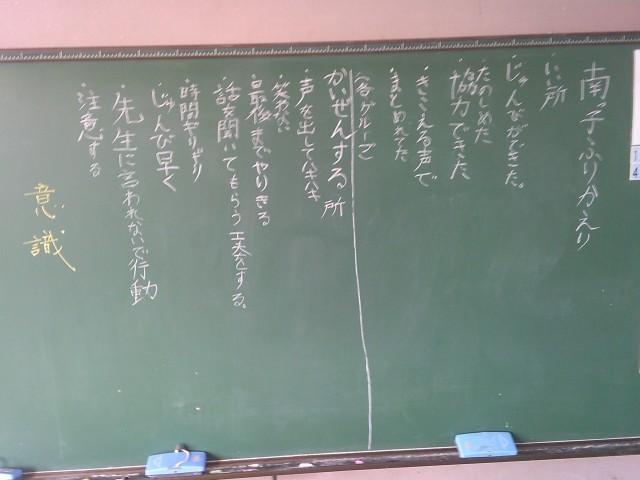 南っ子ふりかえり
いい所
・じゅんびができた。
・たのしめた
・協力できた
・きこえる声で
・まとめれてた
(各グループ)
かいぜんする所
・声を出してハキハキ
・笑わない
・最後までやりきる
・話を聞いてもらう工夫をする。
・時間ギリギリ
・じゅんび早く
・先生に言われないで行動
・注意する
意識
14